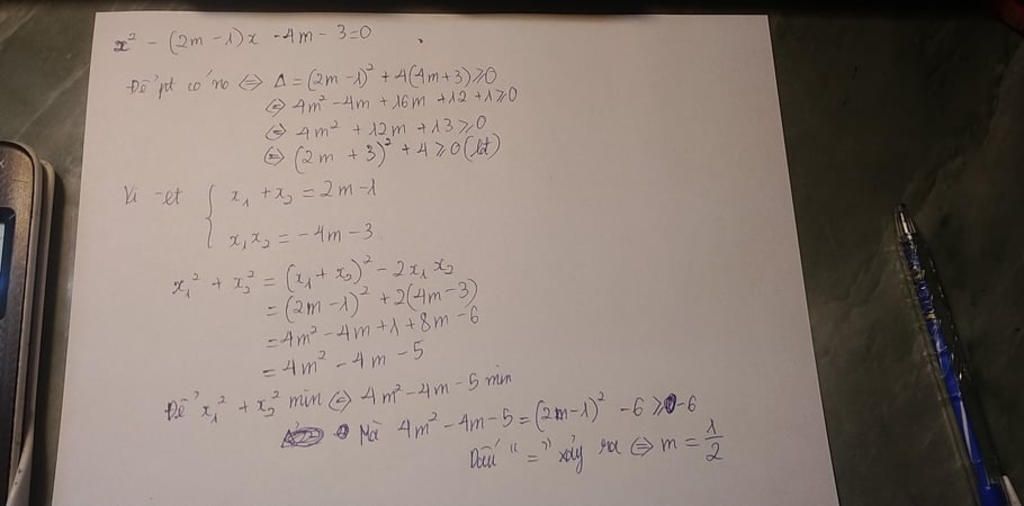 x² - (2m - 1)x - 4m - 3 = 0
Để pt có no ⇔ Δ = (2m - 1)² + 4(4m + 3) ≥ 0
⇔ 4m² - 4m + 16m + 12 + 1 ≥ 0
⇔ 4m² + 12m + 13 ≥ 0
⇔ (2m + 3)² + 4 ≥ 0 (lđ)
Vi-et { x₁ + x₂ = 2m - 1
x₁x₂ = -4m - 3
x₁² + x₂² = (x₁ + x₂)² - 2x₁x₂
= (2m - 1)² + 2(4m - 3)
= 4m² - 4m + 1 + 8m - 6
= 4m² - 4m - 5
Để x₁² + x₂² min ⇔ 4m² - 4m - 5 min
Mà 4m² - 4m - 5 = (2m - 1)² - 6 ≥ -6
Dấu "=" xảy ra ⇔ m = 1/2